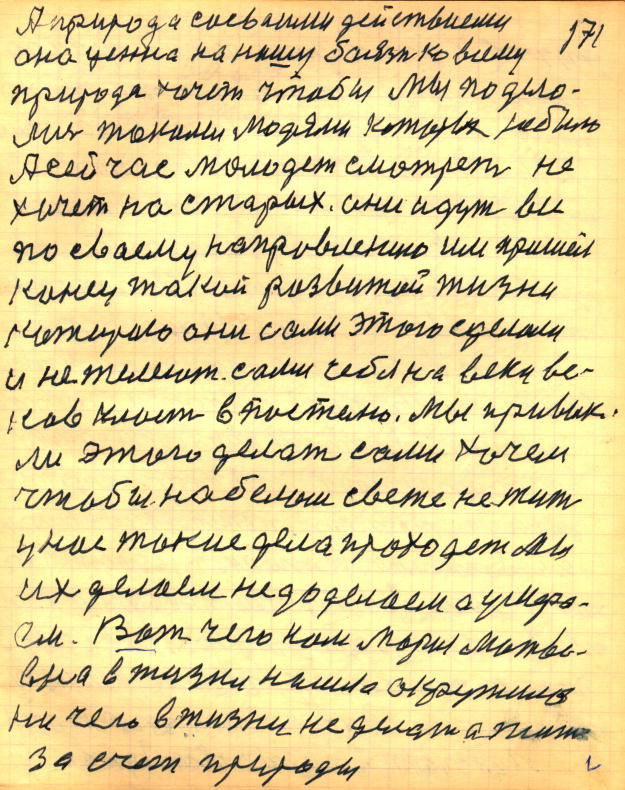 А природа сосваими действиеми 171
она ценна на нашу боязн ко всему
природа хочет чтобы мы подело-
лис такими людями которых небыло
А сейчас молодеж смотреть не
хочет на старых. они идут все
по сваему направлению им пришел
конец такой развитой жизни
которыю они сами этого сделали
и не жилеют. сами себя на веки ве-
ков в постено. мы привык-
ли этого делат сами хочем
чтобы на белом свете не жит
у нас такие дела проходет мы
их делаем не доделаем а умира-
ем. Вот чего нам Мария Матве-
вна в жизни нашла окружила
ни чего в жизни не делат а жит
за счет природы